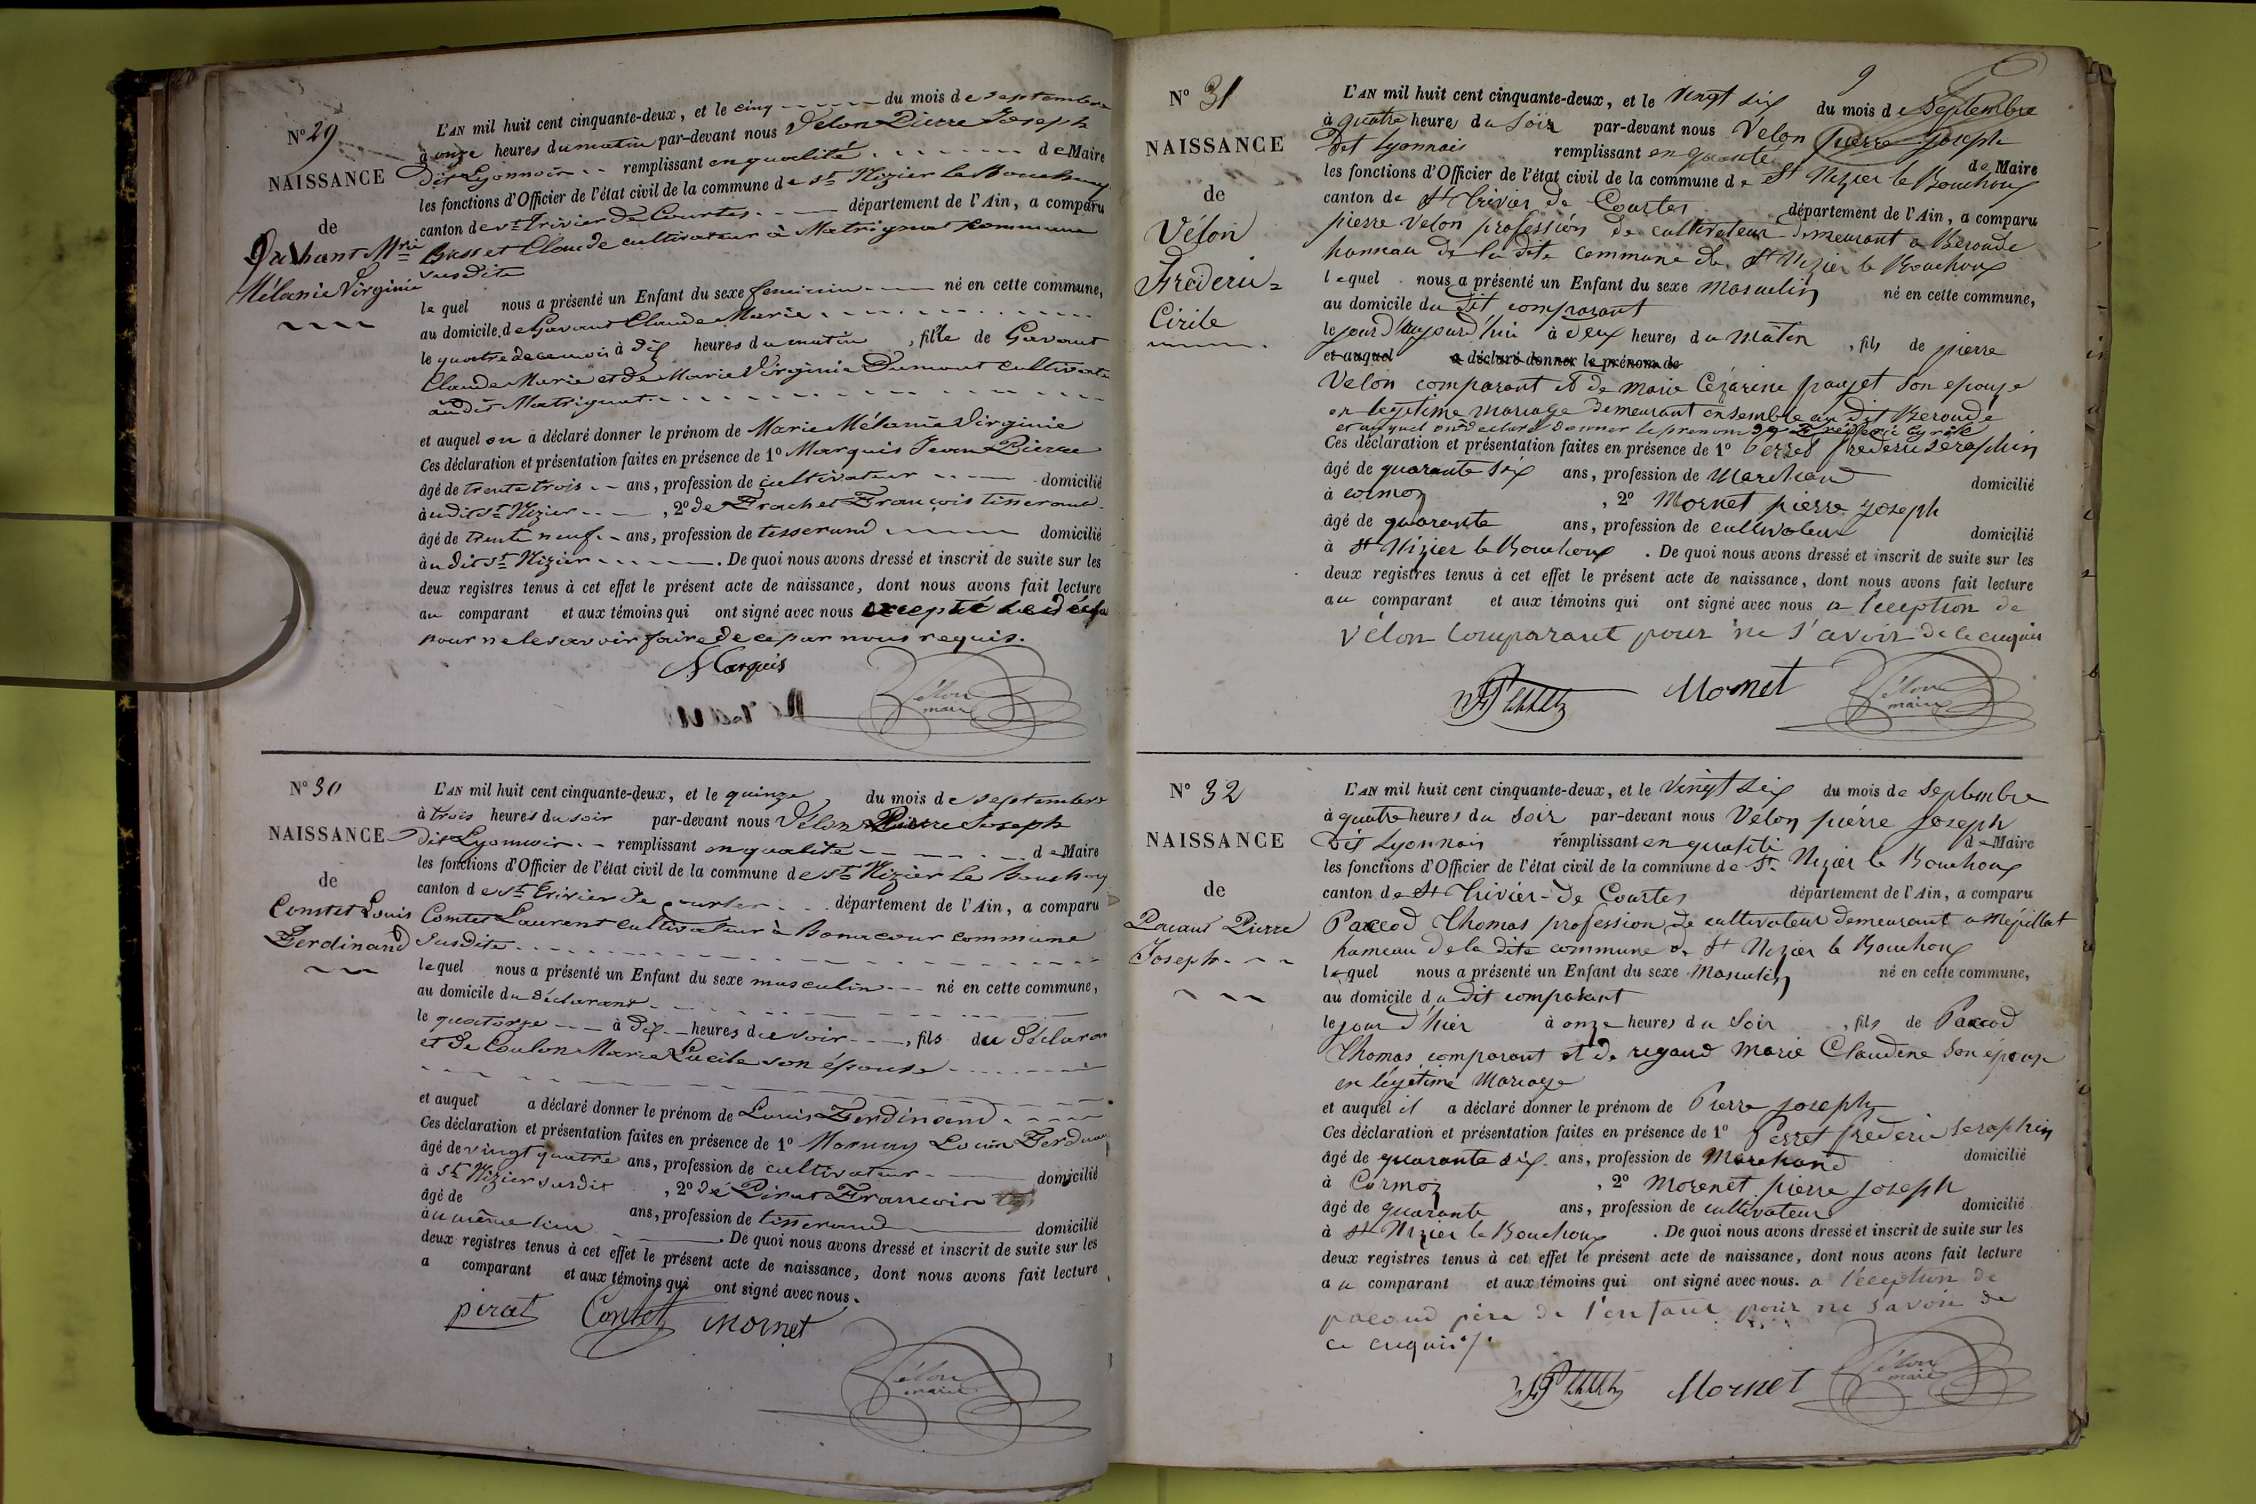 N° 29
NAISSANCE
de
Mélanie Virginie
L'AN mil huit cent cinquante-deux, et le cinq du mois de septembre
à onze heures du matin par-devant nous Velon Pierre Joseph
dit Lyonnois remplissant en qualité de Maire
les fonctions d'Officier de l'état civil de la commune de St Nizier le Bouchoux
canton de St Trivier de Courtes département de l'Ain, a comparu
Claude cultivateur à Matrignat commune
susdite
lequel nous a présenté un Enfant du sexe feminin né en cette commune,
au domicile de Gavant Claude Marie
le quatre de ce mois à dix heures du matin, fille de Gavant
Claude Marie et de Marie Virginie Dumont
au dit Matrignat
et auquel on a déclaré donner le prénom de Marie Mélanie Virginie
Ces déclaration et présentation faites en présence de 1° Marquis Jean Pierre
âgé de trente trois ans, profession de cultivateur domicilié
au dit St Nizier, 2° de François tisserand
âgé de trente neuf ans, profession de tisserand domicilié
au dit St Nizier. De quoi nous avons dressé et inscrit de suite sur les
deux registres tenus à cet effet le présent acte de naissance, dont nous avons fait lecture
au comparant et aux témoins qui ont signé avec nous excepté
pour ne le savoir faire de ce par nous requis.
Marquis
Vélon
maire
N° 30
NAISSANCE
de
Contet Louis
Ferdinand
L'AN mil huit cent cinquante-deux, et le quinze du mois de septembre
à trois heures du soir par-devant nous Velon Pierre Joseph
dit Lyonnois remplissant en qualité de Maire
les fonctions d'Officier de l'état civil de la commune de St Nizier le Bouchoux
canton de St Trivier de Courtes département de l'Ain, a comparu
Contet Laurent cultivateur à Bonacour commune
susdite
lequel nous a présenté un Enfant du sexe masculin né en cette commune,
au domicile du déclarant
le quatorze à dix heures du soir, fils du déclarant
et de Coulon Marie Lucile son épouse
et auquel a déclaré donner le prénom de Louis Ferdinand
Ces déclaration et présentation faites en présence de 1° Louis
âgé de vingt quatre ans, profession de cultivateur domicilié
à St Nizier susdit, 2° de Pirat François
âgé de ans, profession de tisserand domicilié
au même lieu. De quoi nous avons dressé et inscrit de suite sur les
deux registres tenus à cet effet le présent acte de naissance, dont nous avons fait lecture
a comparant et aux témoins qui ont signé avec nous.
pirat Contet Mornet
Vélon
maire
9
N° 31
NAISSANCE
de
Vélon
Fréderic=
Cirile
L'AN mil huit cent cinquante-deux, et le vingt six du mois de Septembre
à quatre heures du Soir par-devant nous Vélon pierre joseph
dit Lyonnais remplissant en qualité de Maire
les fonctions d'Officier de l'état civil de la commune de St Nizier le Bouchoux
canton de St Trivier de Courtes département de l'Ain, a comparu
pierre Velon profession de cultivateur demeurant a Beroude
hameau de la dite commune de St Nizier le Bouchoux
lequel nous a présenté un Enfant du sexe masculin né en cette commune,
au domicile du dit comparant
le jour d'aujourd'hui à deux heures du matin, fils de pierre
et auquel a déclaré donner le prénom de
Velon comparant et de marie Cézarine pauget son epouse
en légitime mariage demeurant ensemble au dit Beroude
et auquel on a déclaré donner le prenom de Fréderic Cyrile
Ces déclaration et présentation faites en présence de 1° Perret frederic séraphin
âgé de quarante six ans, profession de Marchand domicilié
à cormoz, 2° Mornet pierre joseph
âgé de quarante ans, profession de cultivateur domicilié
à St Nizier le Bouchoux. De quoi nous avons dressé et inscrit de suite sur les
deux registres tenus à cet effet le présent acte de naissance, dont nous avons fait lecture
au comparant et aux témoins qui ont signé avec nous a l'éception de
vélon comparant pour ne s'avoir de ce enquis
Mornet
Vélon
maire
N° 32
NAISSANCE
de
Pacaud Pierre
Joseph
L'AN mil huit cent cinquante-deux, et le vingt six du mois de Septembre
à quatre heures du Soir par-devant nous Vélon pierre Joseph
dit Lyonnais remplissant en qualité de Maire
les fonctions d'Officier de l'état civil de la commune de St Nizier le Bouchoux
canton de St Trivier-de Courtes département de l'Ain, a comparu
Paccod Thomas profession de cultivateur demeurant a Mépillat
hameau de la dite commune de St Nizier le Bouchoux
lequel nous a présenté un Enfant du sexe Masculin né en cette commune,
au domicile du dit comparant
le jour d'hier à onze heures du Soir, fils de Paccod
Thomas comparant et de regaud Marie Claudine Son épouse
en légitime Mariage
et auquel il a déclaré donner le prénom de Pierre joseph
Ces déclaration et présentation faites en présence de 1° Perret frederic seraphin
âgé de quarante six ans, profession de Marchand domicilié
à Cormoz, 2° Morenet pierre joseph
âgé de quarante ans, profession de cultivateur domicilié
à St Nizier le Bouchoux. De quoi nous avons dressé et inscrit de suite sur les
deux registres tenus à cet effet le présent acte de naissance, dont nous avons fait lecture
au comparant et aux témoins qui ont signé avec nous. a l'éception de
pacaud père de l'enfant pour ne savoir de
ce enquis
Mornet
Vélon
maire